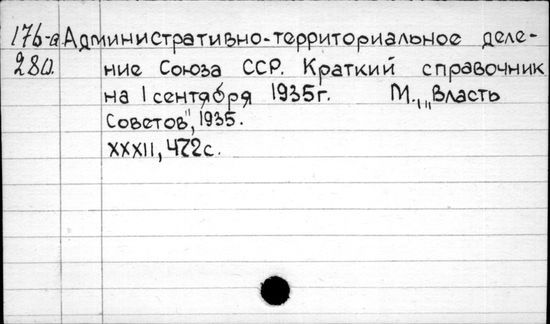 176-а Административно-территориальное деле-
280. ние Союза ССР. Краткий справочник
на 1 сентября 1935г. М., "Власть
Советов", 1935.
XXXII, 472с.